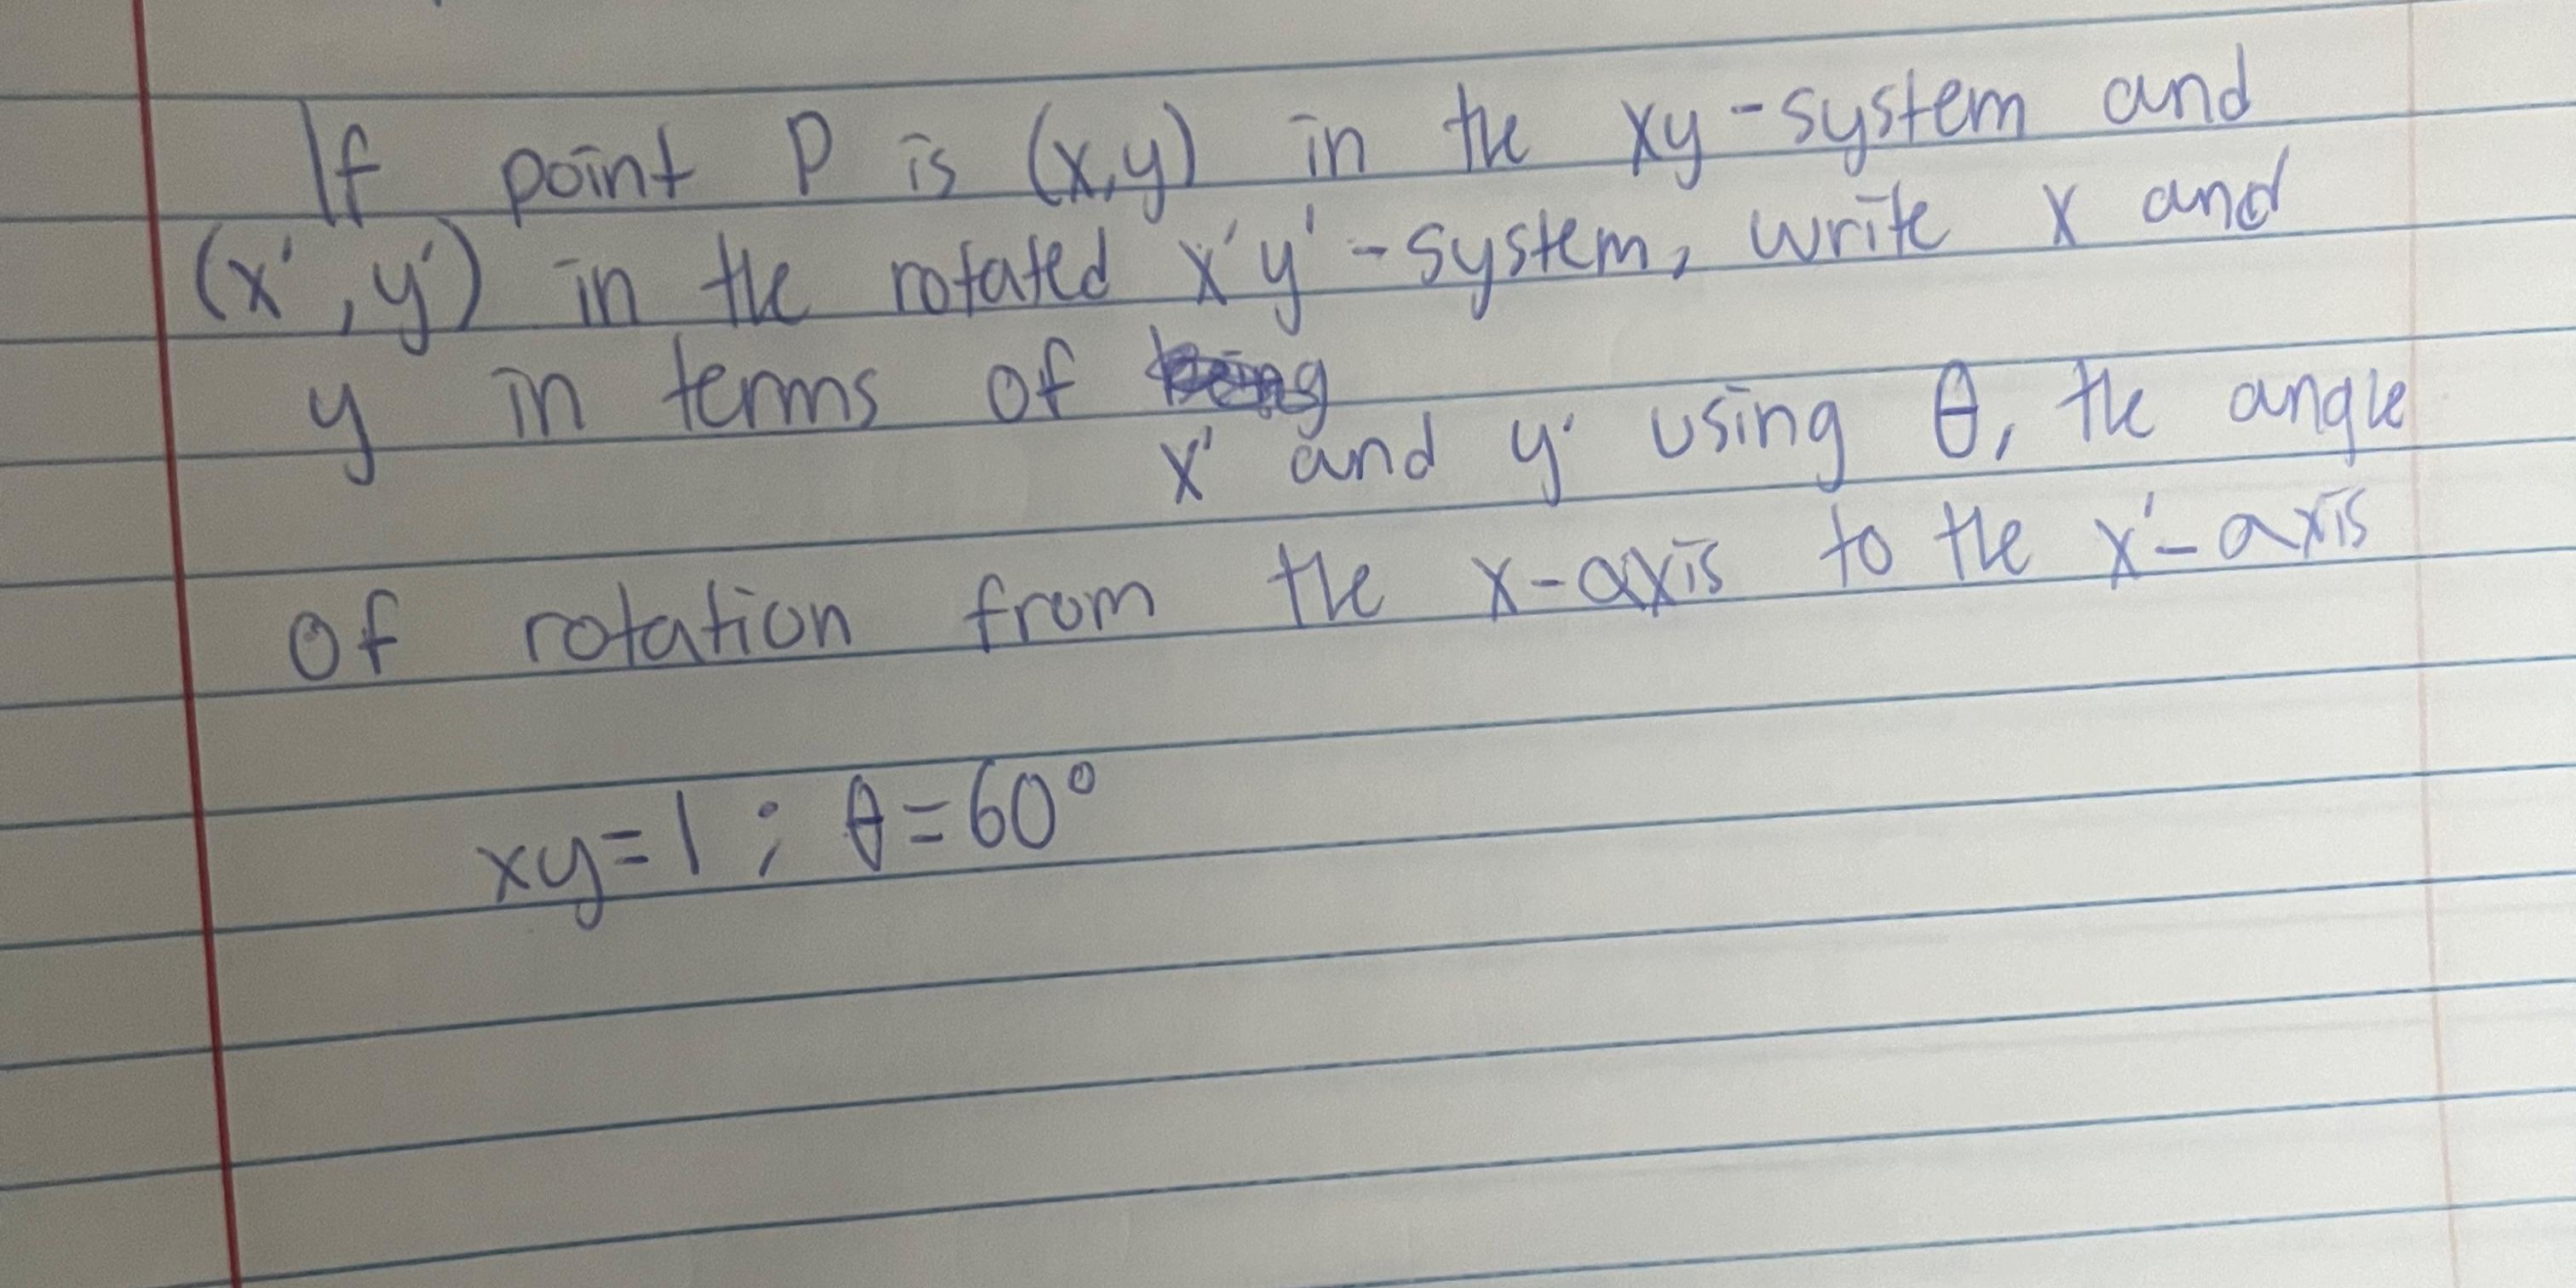 If point P is (x,y) in the xy-system and
(x', y') in the rotated x'y'-system, write x and
y in terms of
x' and y' using θ, the angle
of rotation from the x-axis to the x'-axis
xy=1 ; θ=60°